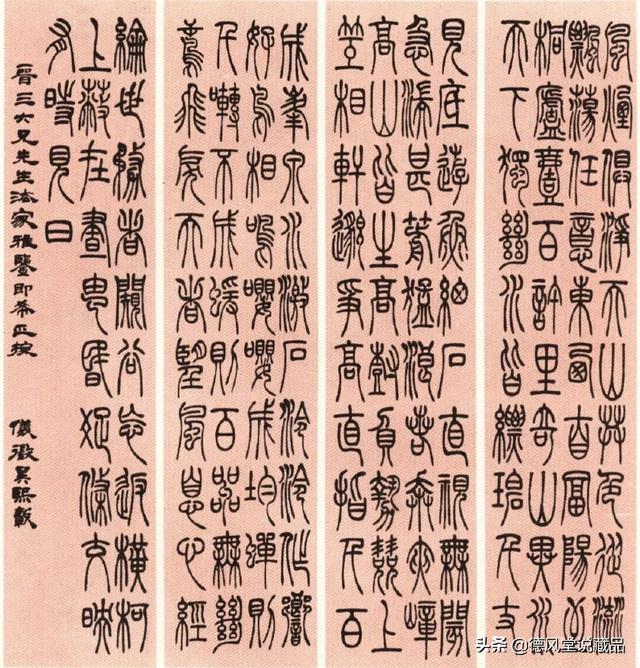 風煙俱淨天山共色從流
飄蕩任意東西自富陽至
桐廬壹百許里奇山異水
天下獨絕水皆縹碧千丈
見底遊魚細石直視無閡
急湍甚箭猛浪若奔夾嶂
高山皆生高樹負勢競上
互相軒邈爭高直指千百
成峯泉水激石泠泠作響
好鳥相鳴嚶嚶成均蟬則
千囀不成蝯則百嘂無絕
鳶飛戾天者望風息心經
綸世務者闚谷忘返橫柯
上蔽在晝猶昏疏條交映
有時見日
晉三六兄先生法家雅鑒即希正捥
儀徵吳熙載
头条 @德风堂说藏品